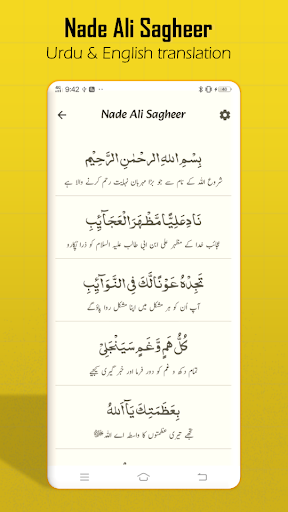 Nade Ali Sagheer
Urdu & English translation
9:42
Nade Ali Sagheer
بِسْمِ اللهِ الرحْمٰنِ الرَّحِيْمِ
شروع اللہ کے نام سے جو بڑا مہربان نہایت رحم کرنے والا ہے
نَادِ عَلِيًّا مَّظْهَرَ الْعَجَآئِبِ
عجائب خدا کے مظہر علی ابن ابی طالب علیہ السلام کو ندا کرو پکارو
تَجِدْهُ عَوْنًا لَّكَ فِي النَّوَآئِبِ
آپ اُن کو ہر مشکل میں اپنا مشکل روا پاؤگے
كُلُّ هَمٍّ وَّغَمٍّ سَيَنْجَلِيْ
تمام دکھ و غم کو دور فرما اور خبر گیری کیجیے
بِعَظَمَتِكَ يَآ اَللهُ
تجھے تیری عظمتوں کا واسطہ اے اللہ ﷻ